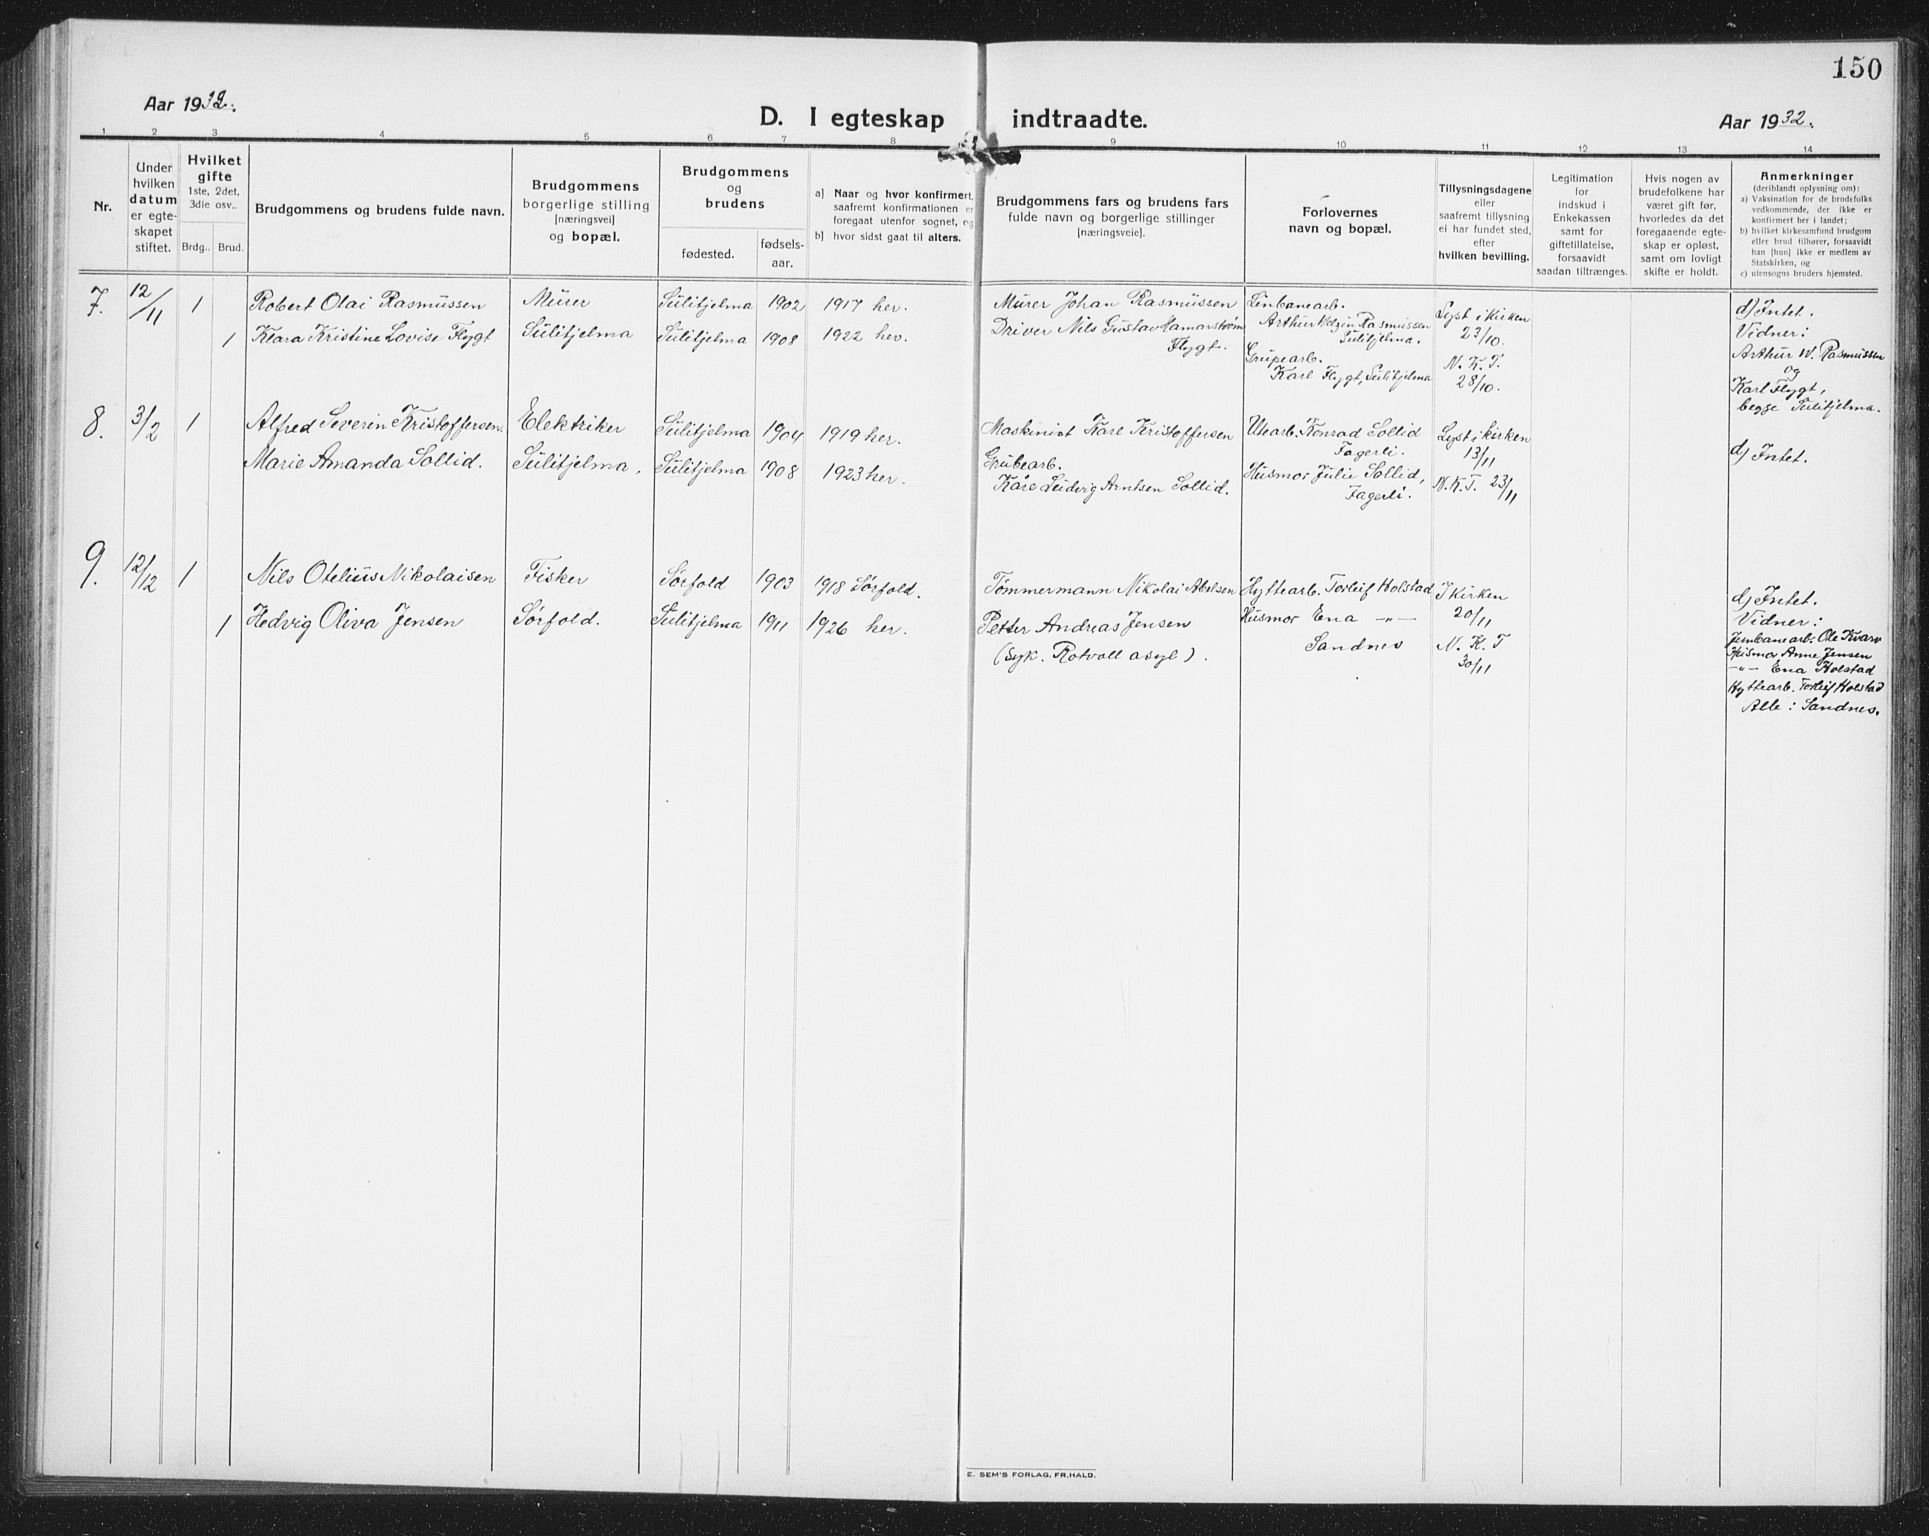 150
Aar 1932.
D. I egteskap indtraadte.
Aar 1932.
1 2 3 4 5 6 7 8 9 10 11 12 13 14
Nr.
Under hvilken datum er egteskapet stiftet.
Hvilket gifte
1ste, 2det, 3die osv..
Brdg.. Brud.
Brudgommens og brudens fulde navn.
Brudgommens borgerlige stilling [næringsvei] og bopæl.
Brudgommens og brudens
fødested.
fødsels-aar.
a] Naar og hvor konfirmert, saafremt konfirmationen er foregaat utenfor sognet, og
b] hvor sidst gaat til alters.
Brudgommens fars og brudens fars fulde navn og borgerlige stillinger [næringsveie].
Forlovernes navn og bopæl.
Tillysningsdagene eller saafremt tillysning ei har fundet sted, efter hvilken bevilling.
Legitimation for indskud i Enkekassen samt for giftetillatelse, forsaavidt saadan tiltrænges.
Hvis nogen av brudefolkene har været gift før, hvorledes da det foregaaende egteskap er opløst, samt om lovligt skifte er holdt.
Anmerkninger
(deriblandt oplysning om):
a) Vaksination for de brudefolks vedkommende, der ikke er konfirmert her i landet;
b) hvilket kirkesamfund brudgom eller brud tilhører, forsaavidt han [hun] ikke er medlem av Statskirken, og
c) utensogns bruders hjemsted.
7. 12/11 1 Robert Olai Rasmussen Murer Sulitjelma 1902 1917 her. Murer Johan Rasmussen Linbanearb. Arthur Rasmussen Sulitjelma. Lyst i kirken 23/10. d) Intet.
1 Klara Kristine Lovise Flygt Sulitjelma Sulitjelma 1908 1922 her. Driver Nils Gustav Hamarstrøm Flygt. Grupearb. Karl Flygt, Sulitjelma N. K. T. 28/10. Vidner:
Arthur W. Rasmussen
og
Karl Flygt,
begge Sulitjelma.
8. 3/2 1 Alfred Severin Kristoffersen. Elektriker Sulitjelma 1904 1919 her. Maskinist Karl Kristoffersen Utearb. Konrad Sollid Fagerli. Lyst i kirken 13/11 d) Intet.
Marie Amanda Sollid. Sulitjelma. Sulitjelma 1908 1923 her. Grubearb. Kåre Ludvig Arntsen Sollid. Husmor Julie Sollid, Fagerli. N. K. T. 23/11
9. 12/12 1 Nils Otelius Nikolaisen Fisker Sørfold 1903 1918 Sørfold. Tømmermann Nikolai Abelsen Hyttearb. Torleif Holstad I kirken 20/11 d) Intet.
1 Hedvig Oliva Jensen Sørfold. Sulitjelma 1911 1926 her. Petter Andreas Jensen Husmor Ena -"- Sandnes N. K. T 30/11 Vidner:
(Syk. Rotvoll asyl).
Jernbanearb. Ole Kvarv
Husmor Anne Jensen
-"- Ena Holstad
Hyttearb. Torleif Holstad
Alle: Sandnes.
E. SEM'S FORLAG, FR.HALD.